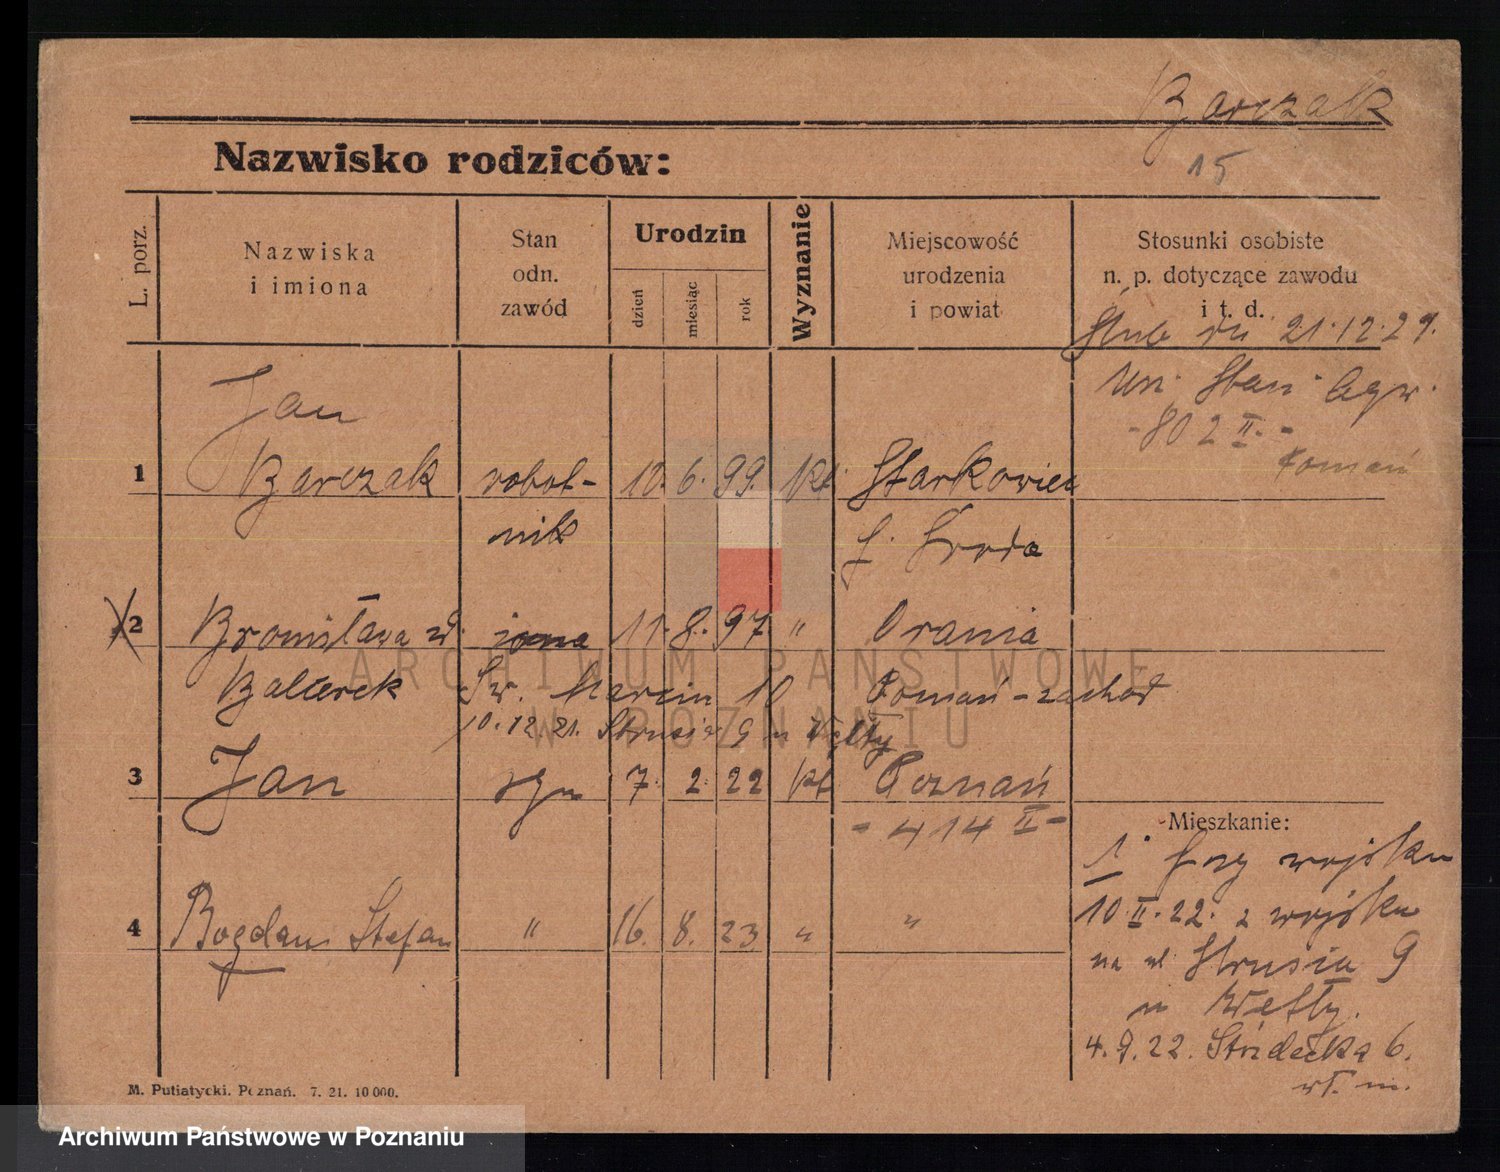 Barczak
15
Nazwisko rodziców:
L. porz.
Nazwiska
i imiona
Stan
odn.
zawód
Urodzin
dzień
miesiąc
rok
Wyznanie
Miejscowość
urodzenia
i powiat
Stosunki osobiste
n. p. dotyczące zawodu
i t. d.
21.12.21.
Stan
- 802 II. -
Poznań
Jan
1 Barczak robot- 10. 6. 99. kt Starkowiec
nik Środa
2 Bronisława żona 11. 8. 97 " Orania
Balcerek Św. Marcin 10 Poznań-zachod
10.12.21. Strusia 9 u Wełty
3 Jan syn 7. 2. 22 kt Poznań
- 414 II -
Mieszkanie:
1 przy wojsku
10.II.22. z wojska
na ul Strusia 9
u Wełty.
4 Bogdan Stefan " 16. 8. 23 " "
4.9.22. Strzelecka 6.
wł. m.
M. Putiatycki. Poznań. 7. 21. 10 000.
ARCHIWUM PAŃSTWOWE
W POZNANIU
Archiwum Państwowe w Poznaniu